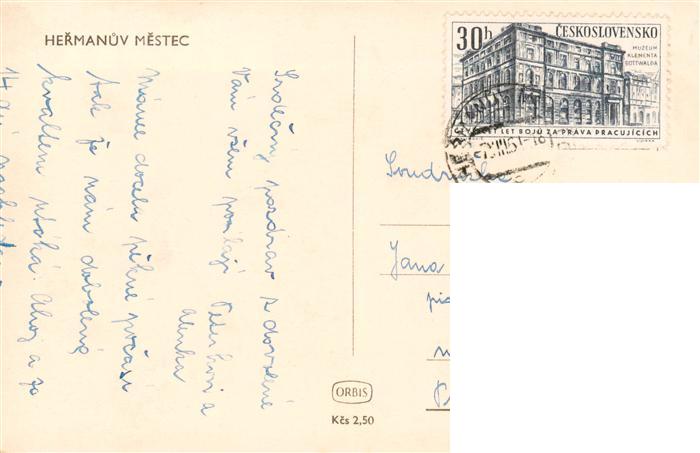 HEŘMANŮV MĚSTEC
30h
ČESKOSLOVENSKO
MUZEUM
KLEMENTA
GOTTWALDA
LET BOJŮ ZA PRÁVA PRACUJÍCÍCH
Srdečný pozdrav z dovolené
Vám všem posílají
Alenka
Máme docela pěkné počasí
tak je nám dovolená
kvaltem utíká. Ahoj a za
14 dní
Soudružka
Jana
ORBIS
Kčs 2,50